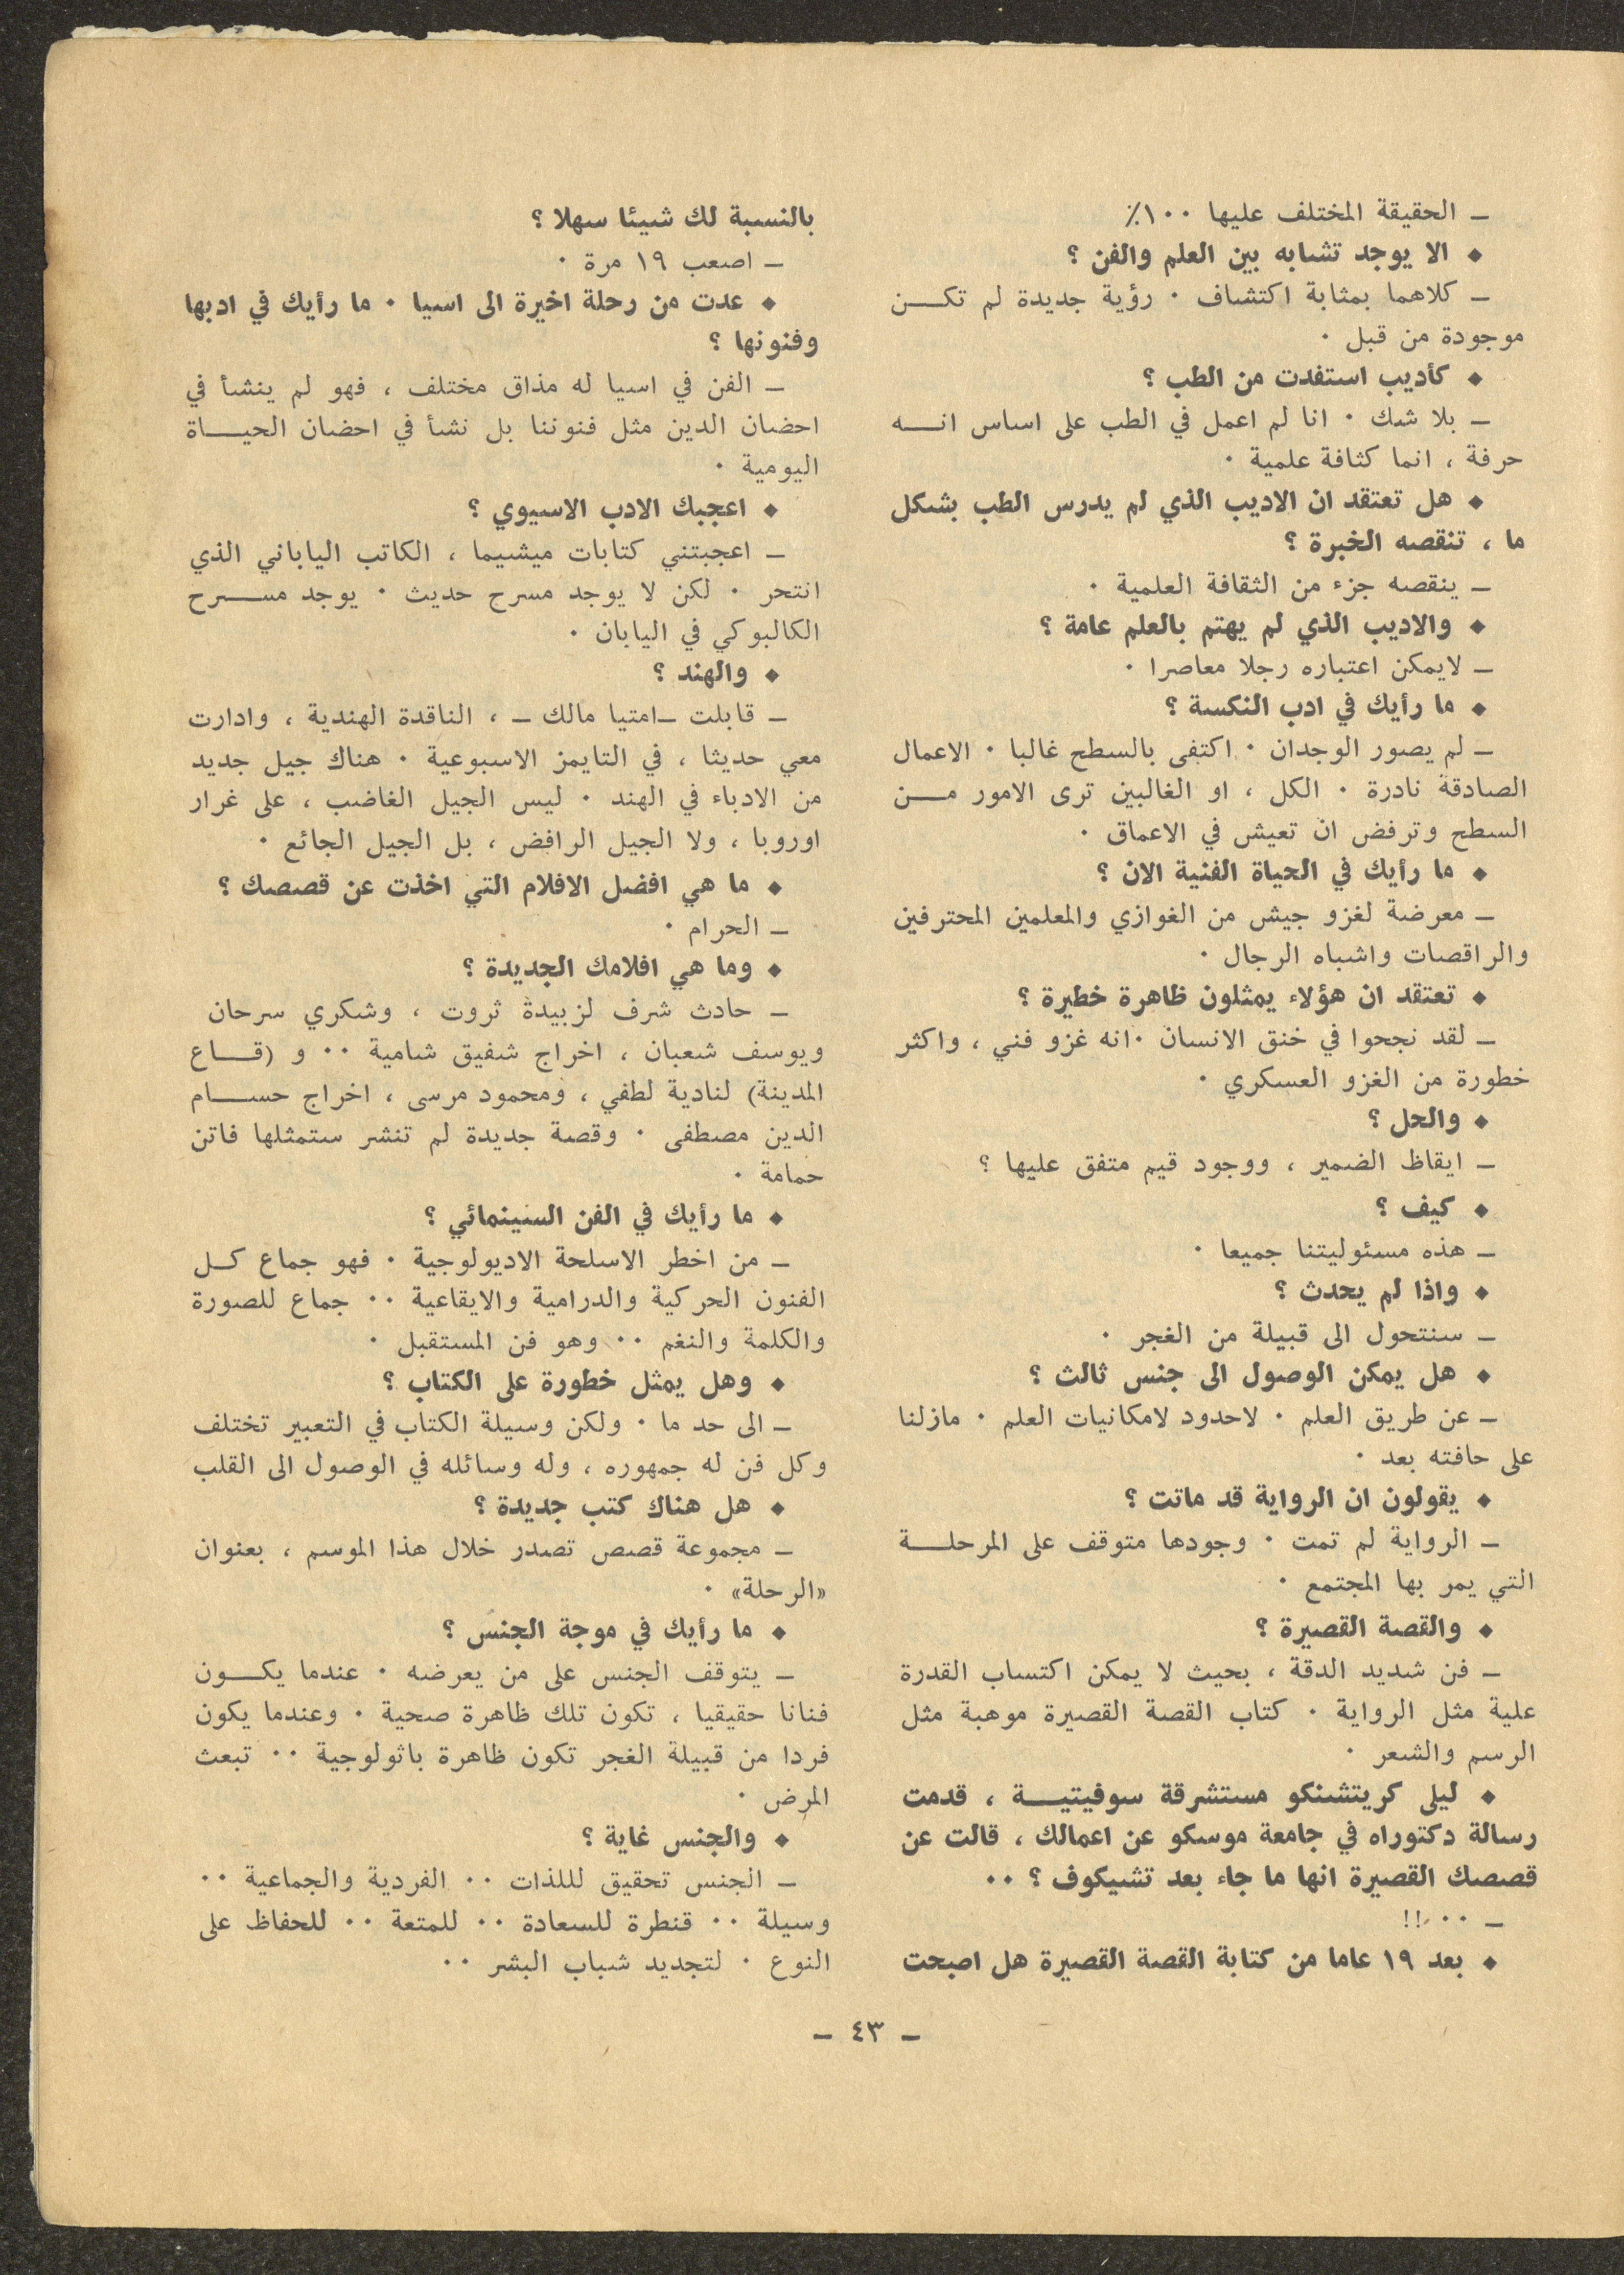 ـ الحقيقة المختلف عليها ١٠٠٪
◆ الا يوجد تشابه بين العلم والفن ؟
ـ كلاهما بمثابة اكتشاف ٠ رؤية جديدة لم تكـــن
موجودة من قبل ٠
◆ كأديب استفدت من الطب ؟
ـ بلا شك ٠ انا لم اعمل في الطب على اساس انـــه
حرفة ، انما كثافة علمية ٠
◆ هل تعتقد ان الاديب الذي لم يدرس الطب بشكل
ما ، تنقصه الخبرة ؟
ـ ينقصه جزء من الثقافة العلمية ٠
◆ والاديب الذي لم يهتم بالعلم عامة ؟
ـ لايمكن اعتباره رجلا معاصرا ٠
◆ ما رأيك في ادب النكسة ؟
ـ لم يصور الوجدان ٠ اكتفى بالسطح غالبا ٠ الاعمال
الصادقة نادرة ٠ الكل ، او الغالبين ترى الامور مـــن
السطح وترفض ان تعيش في الاعماق ٠
◆ ما رأيك في الحياة الفنية الان ؟
ـ معرضة لغزو جيش من الغوازي والمعلمين المحترفين
والراقصات واشباه الرجال ٠
◆ تعتقد ان هؤلاء يمثلون ظاهرة خطيرة ؟
ـ لقد نجحوا في خنق الانسان ٠انه غزو فني ، واكثر
خطورة من الغزو العسكري ٠
◆ والحل ؟
ـ ايقاظ الضمير ، ووجود قيم متفق عليها ؟
◆ كيف ؟
ـ هذه مسئوليتنا جميعا ٠
◆ واذا لم يحدث ؟
ـ سنتحول الى قبيلة من الغجر ٠
◆ هل يمكن الوصول الى جنس ثالث ؟
ـ عن طريق العلم ٠ لاحدود لامكانيات العلم ٠ مازلنا
على حافته بعد ٠
◆ يقولون ان الرواية قد ماتت ؟
ـ الرواية لم تمت ٠ وجودها متوقف على المرحلـــة
التي يمر بها المجتمع ٠
◆ والقصة القصيرة ؟
ـ فن شديد الدقة ، بحيث لا يمكن اكتساب القدرة
علية مثل الرواية ٠ كتاب القصة القصيرة موهبة مثل
الرسم والشعر ٠
◆ ليلى كريتشنكو مستشرقة سوفيتيـــة ، قدمت
رسالة دكتوراه في جامعة موسكو عن اعمالك ، قالت عن
قصصك القصيرة انها ما جاء بعد تشيكوف ؟ ٠٠
ـ ٠٠ !!
◆ بعد ١٩ عاما من كتابة القصة القصيرة هل اصبحت
بالنسبة لك شيئا سهلا ؟
ـ اصعب ١٩ مرة ٠
◆ عدت من رحلة اخيرة الى اسيا ٠ ما رأيك في ادبها
وفنونها ؟
ـ الفن في اسيا له مذاق مختلف ، فهو لم ينشأ في
احضان الدين مثل فنوننا بل نشأ في احضان الحيـــاة
اليومية ٠
◆ اعجبك الادب الاسيوي ؟
ـ اعجبتني كتابات ميشيما ، الكاتب الياباني الذي
انتحر ٠ لكن لا يوجد مسرح حديث ٠ يوجد مســـرح
الكالبوكي في اليابان ٠
◆ والهند ؟
ـ قابلت ـامتيا مالك ـ ، الناقدة الهندية ، وادارت
معي حديثا ، في التايمز الاسبوعية ٠ هناك جيل جديد
من الادباء في الهند ٠ ليس الجيل الغاضب ، على غرار
اوروبا ، ولا الجيل الرافض ، بل الجيل الجائع ٠
◆ ما هي افضل الافلام التي اخذت عن قصصك ؟
ـ الحرام ٠
◆ وما هي افلامك الجديدة ؟
ـ حادث شرف لزبيدة ثروت ، وشكري سرحان
ويوسف شعبان ، اخراج شفيق شامية ٠٠ و (قـــاع
المدينة) لنادية لطفي ، ومحمود مرسى ، اخراج حســـام
الدين مصطفى ٠ وقصة جديدة لم تنشر ستمثلها فاتن
حمامة ٠
◆ ما رأيك في الفن السينمائي ؟
ـ من اخطر الاسلحة الاديولوجية ٠ فهو جماع كــل
الفنون الحركية والدرامية والايقاعية ٠٠ جماع للصورة
والكلمة والنغم ٠٠ وهو فن المستقبل ٠
◆ وهل يمثل خطورة على الكتاب ؟
ـ الى حد ما ٠ ولكن وسيلة الكتاب في التعبير تختلف
وكل فن له جمهوره ، وله وسائله في الوصول الى القلب
◆ هل هناك كتب جديدة ؟
ـ مجموعة قصص تصدر خلال هذا الموسم ، بعنوان
«الرحلة» ٠
◆ ما رأيك في موجة الجنس ؟
ـ يتوقف الجنس على من يعرضه ٠ عندما يكـــون
فنانا حقيقيا ، تكون تلك ظاهرة صحية ٠ وعندما يكون
فردا من قبيلة الغجر تكون ظاهرة باثولوجية ٠٠ تبعث
المرض ٠
◆ والجنس غاية ؟
ـ الجنس تحقيق لللذات ٠٠ الفردية والجماعية ٠٠
وسيلة ٠٠ قنطرة للسعادة ٠٠ للمتعة ٠٠ للحفاظ على
النوع ٠ لتجديد شباب البشر ٠٠
ـ ٤٣ ـ